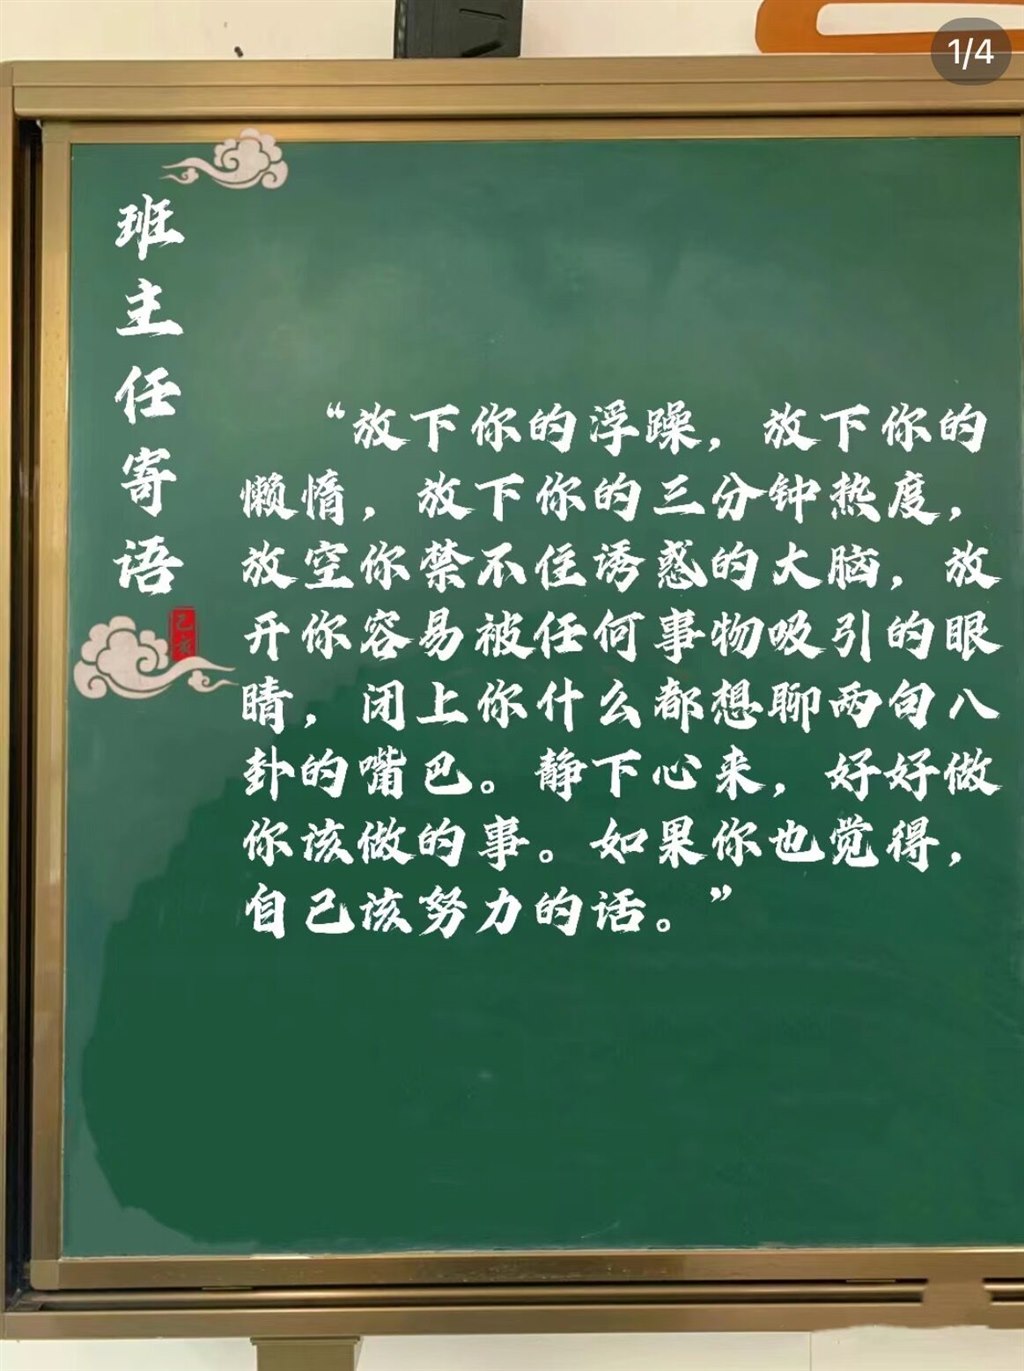 1/4
班主任寄语
己亥
“放下你的浮躁，放下你的
懒惰，放下你的三分钟热度，
放空你禁不住诱惑的大脑，放
开你容易被任何事物吸引的眼
睛，闭上你什么都想聊两句八
卦的嘴巴。静下心来，好好做
你该做的事。如果你也觉得，
自己该努力的话。”